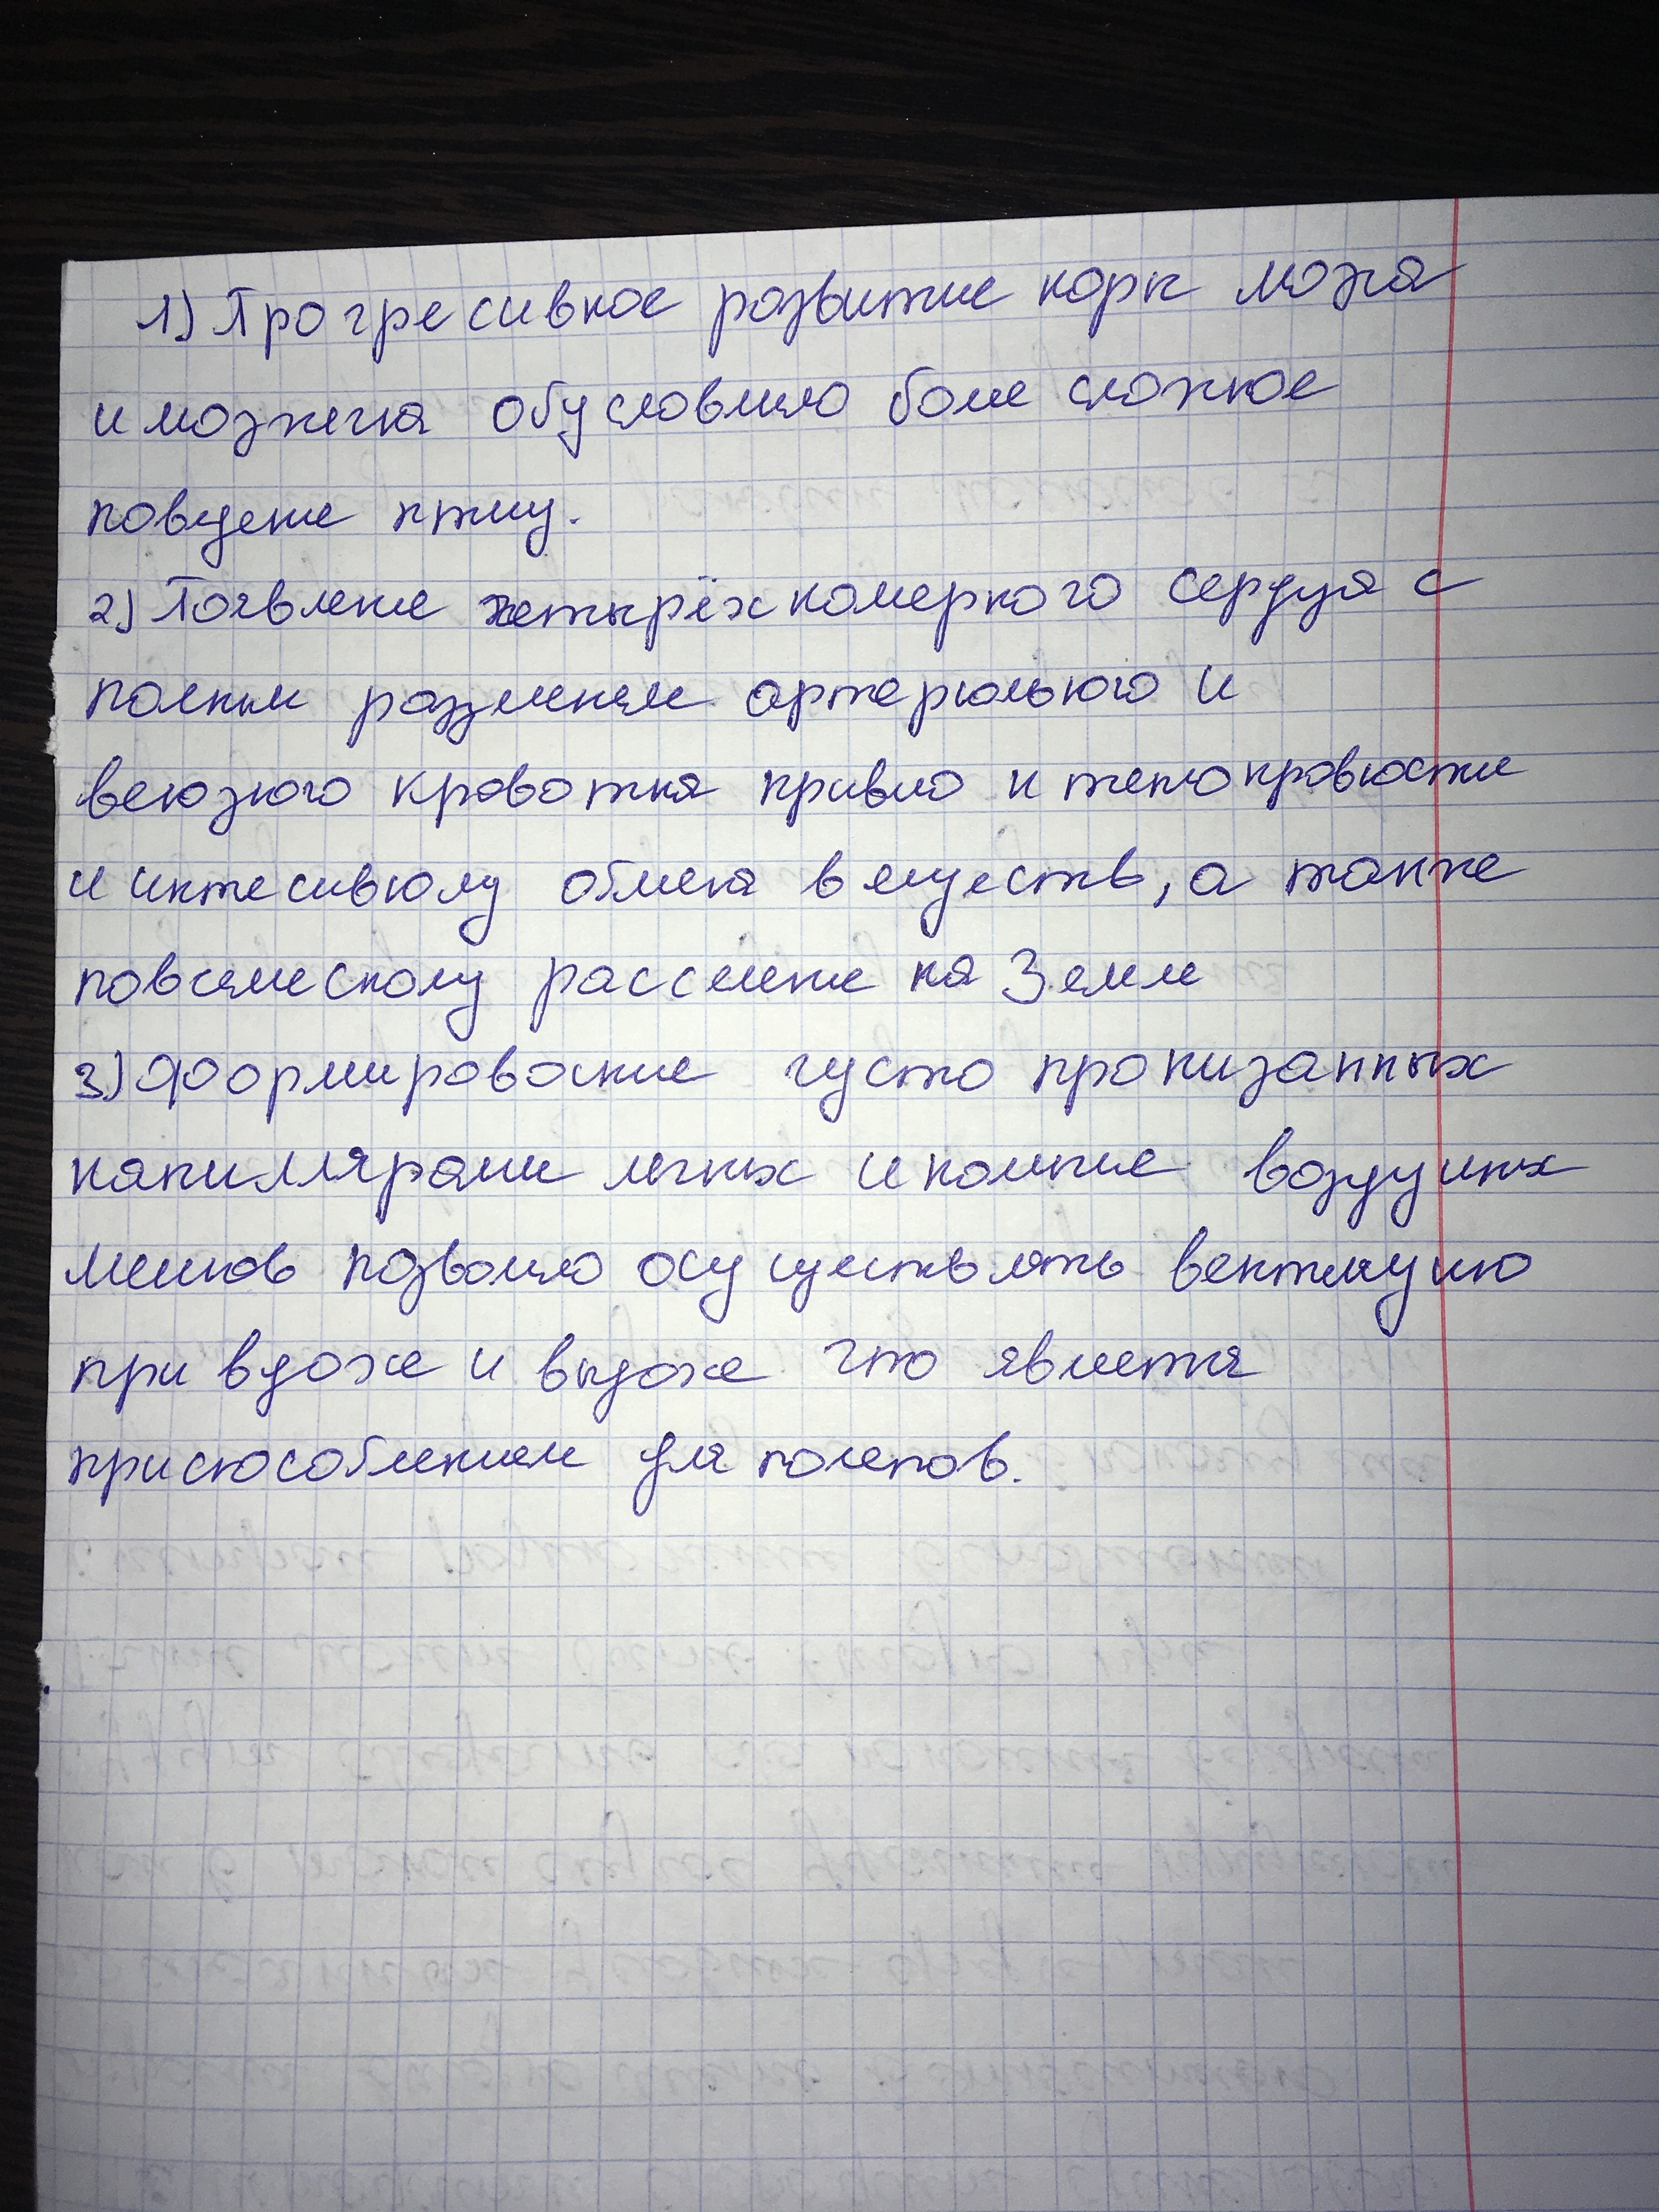 1) Прогресивное развитие корк мозга
и мозжечка обусловило боле сложное
поведение птиц.
2) Появление четырёхкамерного сердца с
полным разделением артериального и
венозного кровотка привело к теплокровности
и интесивному обмена веществ, а также
повсемескому расселение на Земле
3) Формирование густо пронизанных
капиллярами легких и комплекс воздушных
мешков позволило осуществлять вентиляцию
при вдохе и выдохе что является
приспособлением для полетов.